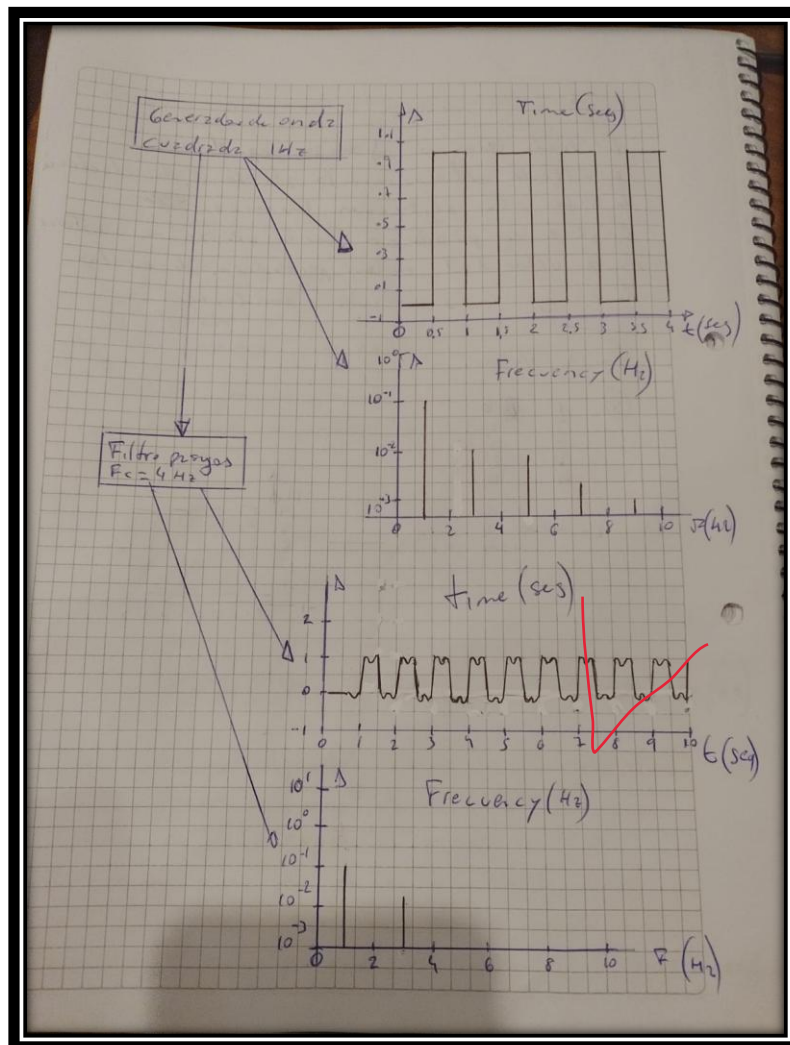 Generador de onda
Cuadrada 1Hz
Time (seg)
A
1.1
.9
.7
.5
.3
.1
-.1
0 0,5 1 1,5 2 2,5 3 3,5 4 t(seg)
Frecuency (Hz)
A
10⁰
10⁻¹
10⁻²
10⁻³
0 2 4 6 8 10 F(Hz)
Filtro pasajos
Fc = 4 Hz
time (seg)
A
2
1
0
-1
0 1 2 3 4 5 6 7 8 9 10 t(seg)
Frecuency (Hz)
A
10¹
10⁰
10⁻¹
10⁻²
10⁻³
0 2 4 6 8 10 F (Hz)